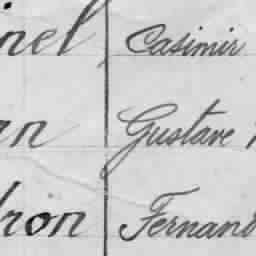 nel Casimir
an Gustave
dron Fernand